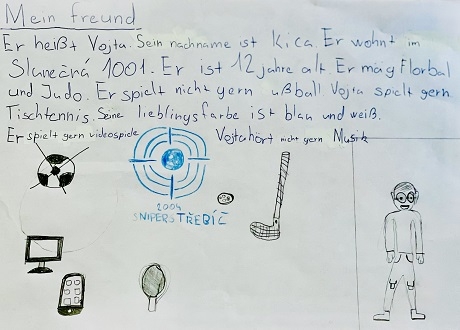 Mein freund
Er heißt Vojta. Sein nachname ist Kica. Er wohnt im
Slavečná 1001. Er ist 12 jahre alt. Er mag Florbal
und Judo. Er spielt nicht gern ußball. Vojta spielt gern
Tischtennis. Seine lieblingsfarbe ist blau und weiß.
Er spielt gern videospiele
Vojta hört nicht gern Musik
2004
SNIPERS TŘEBÍČ